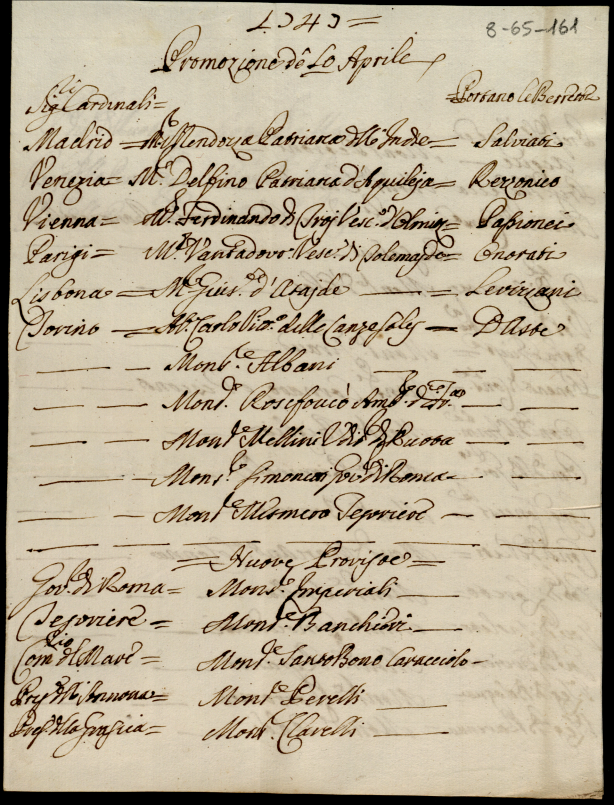 1747=
8-65-161
Promozione de 10 Aprile
Sig.ri Cardinali=
=Portano le Berrette
Madrid = M.r Mendoza Patriarca dell' Indie= Salviati
Venezia= M.r Delfino Patriarca d'Aquileja= Rezonico
Vienna= M.r Ferdinando di Vesc.o d'Olmiz= Passionei
Parigi= M.r Vantadovr Vesc.o di Tolemajde= Onorati
Lisbona = M.r Gius.e d'Atajde — Levizzani
Torino = M.r Carlo Vit.o delle Lanze = D'Aste
Mons.r Albani
Mons.r Rosefoucò Amb.r
Mons.r Mellini Ud.re di Ruota
Mons.r Gov.r di Roma
Mons.r Mesmero Tesoriere
=Nuove Proviste=
Gov.r di Roma= Mons.r Imperiali
Tesoriere= Mons.r Banchieri
Com.rio del Mare= Mons.r Santo Bono Caracciolo
Pref. dell' Annona= Mons.r Perelli
Pref. della Grascia= Mons.r Clavelli